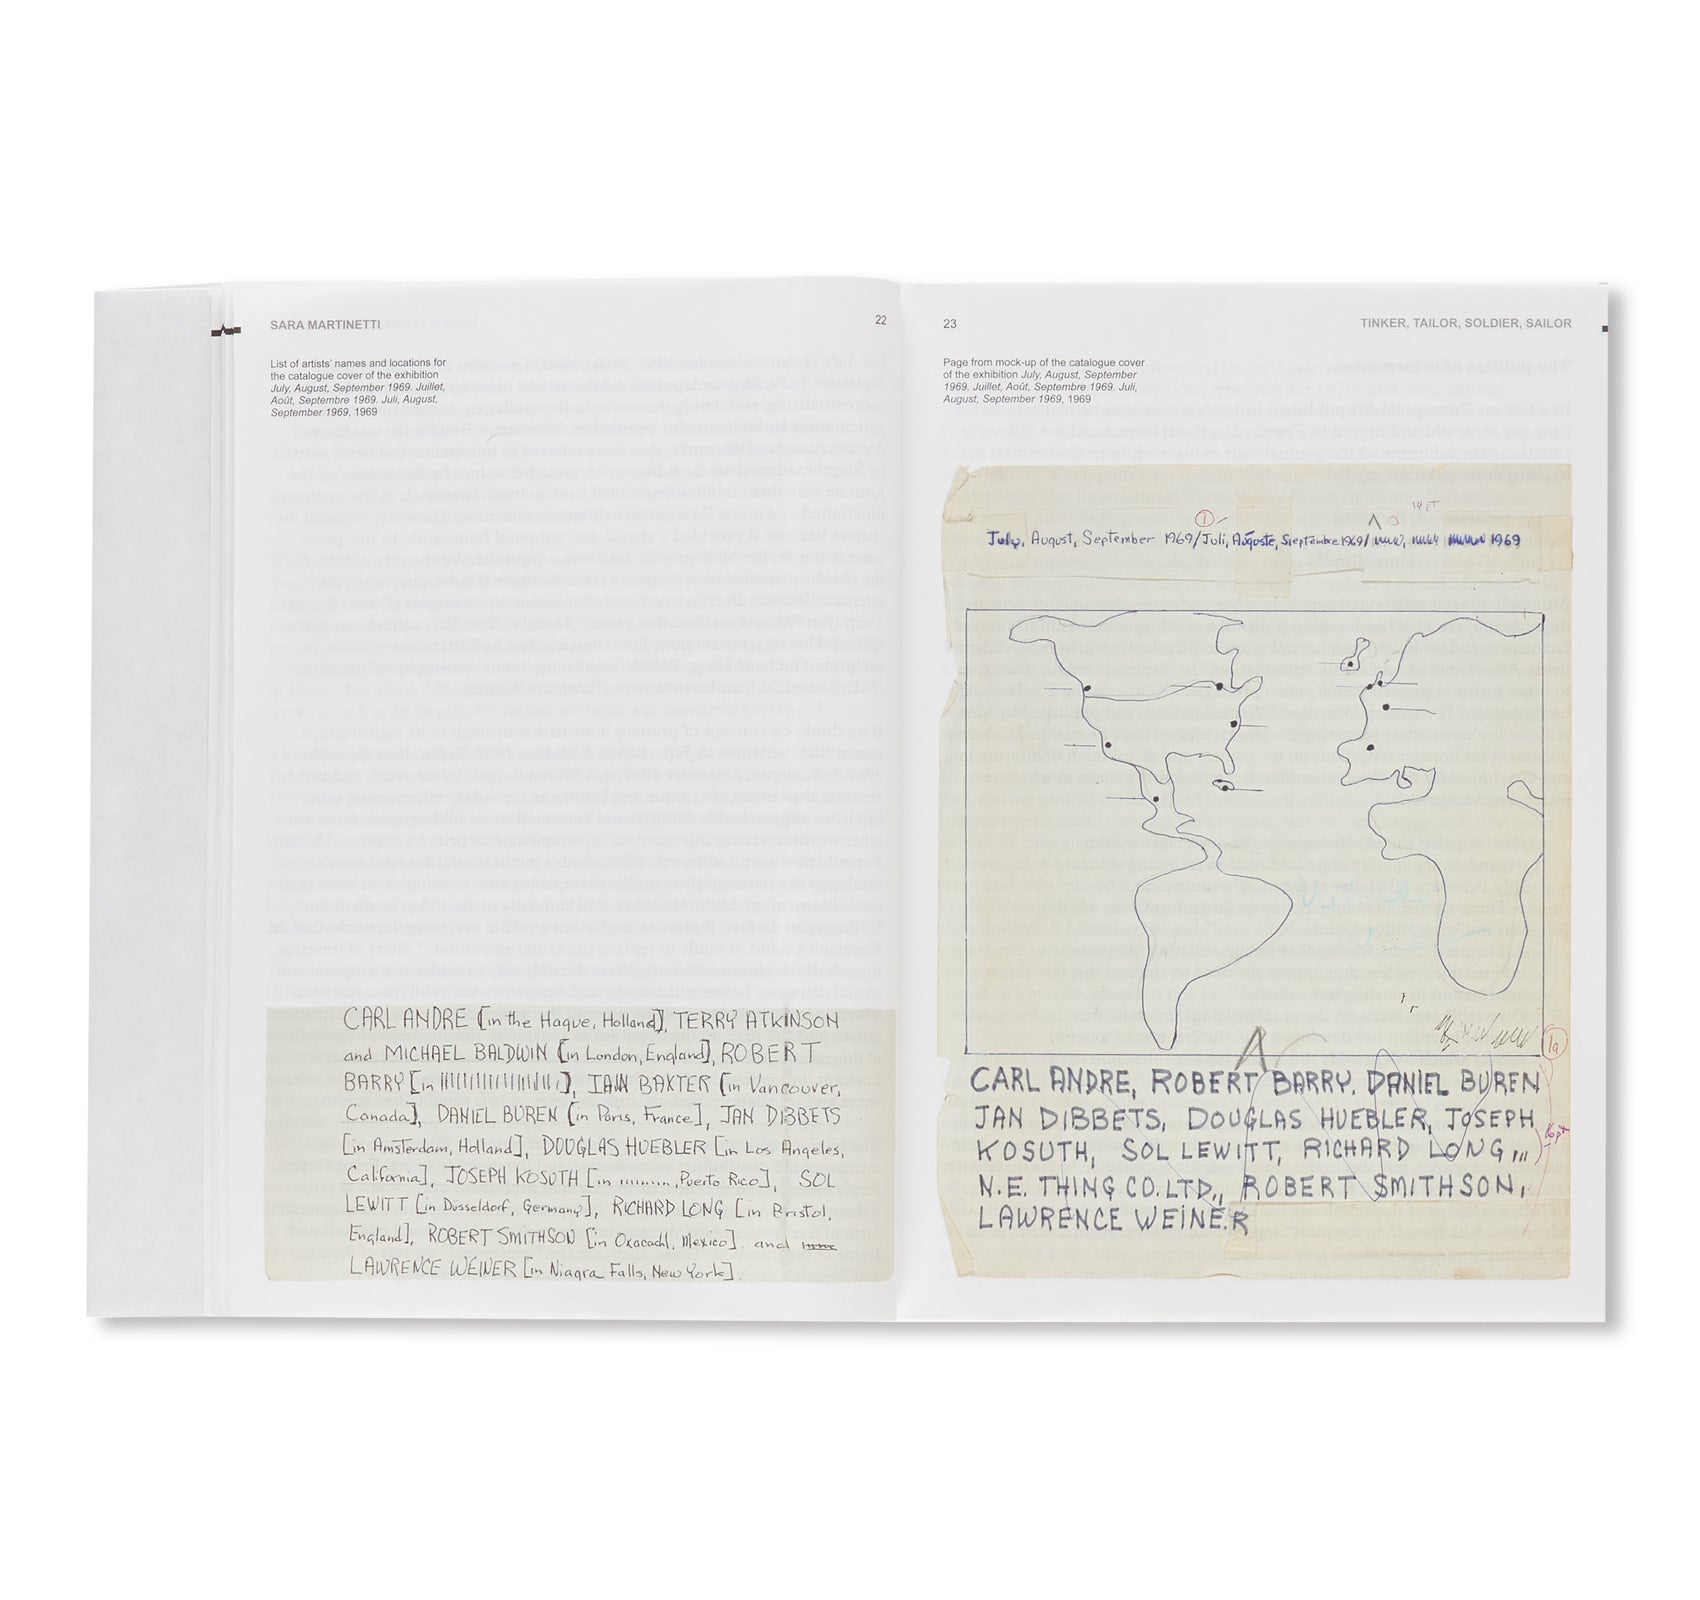 SARA MARTINETTI
22
List of artists' names and locations for
the catalogue cover of the exhibition
July, August, September 1969. Juillet,
Août, Septembre 1969. Juli, August,
September 1969, 1969
CARL ANDRE [in the Hague, Holland], TERRY ATKINSON
and MICHAEL BALDWIN [in London, England], ROBERT
BARRY [in ], IAIN BAXTER [in Vancouver,
Canada], DANIEL BUREN [in Paris, France], JAN DIBBETS
[in Amsterdam, Holland], DOUGLAS HUEBLER [in Los Angeles,
California], JOSEPH KOSUTH [in ........., Puerto Rico], SOL
LEWITT [in Düsseldorf, Germany], RICHARD LONG [in Bristol,
England], ROBERT SMITHSON [in , Mexico]. and
LAWRENCE WEINER [in Niagra Falls, New York].
23
TINKER, TAILOR, SOLDIER, SAILOR
Page from mock-up of the catalogue cover
of the exhibition July, August, September
1969. Juillet, Août, Septembre 1969. Juli,
August, September 1969, 1969
1
14 pt
July, August, September 1969/Juli, Auguste, Sieptembre 1969/ 1969
1a
CARL ANDRE, ROBERT BARRY. DANIEL BUREN
JAN DIBBETS, DOUGLAS HUEBLER, JOSEPH
KOSUTH, SOL LEWITT, RICHARD LONG,,,
N.E. THING CO. LTD., ROBERT SMITHSON,
LAWRENCE WEINER